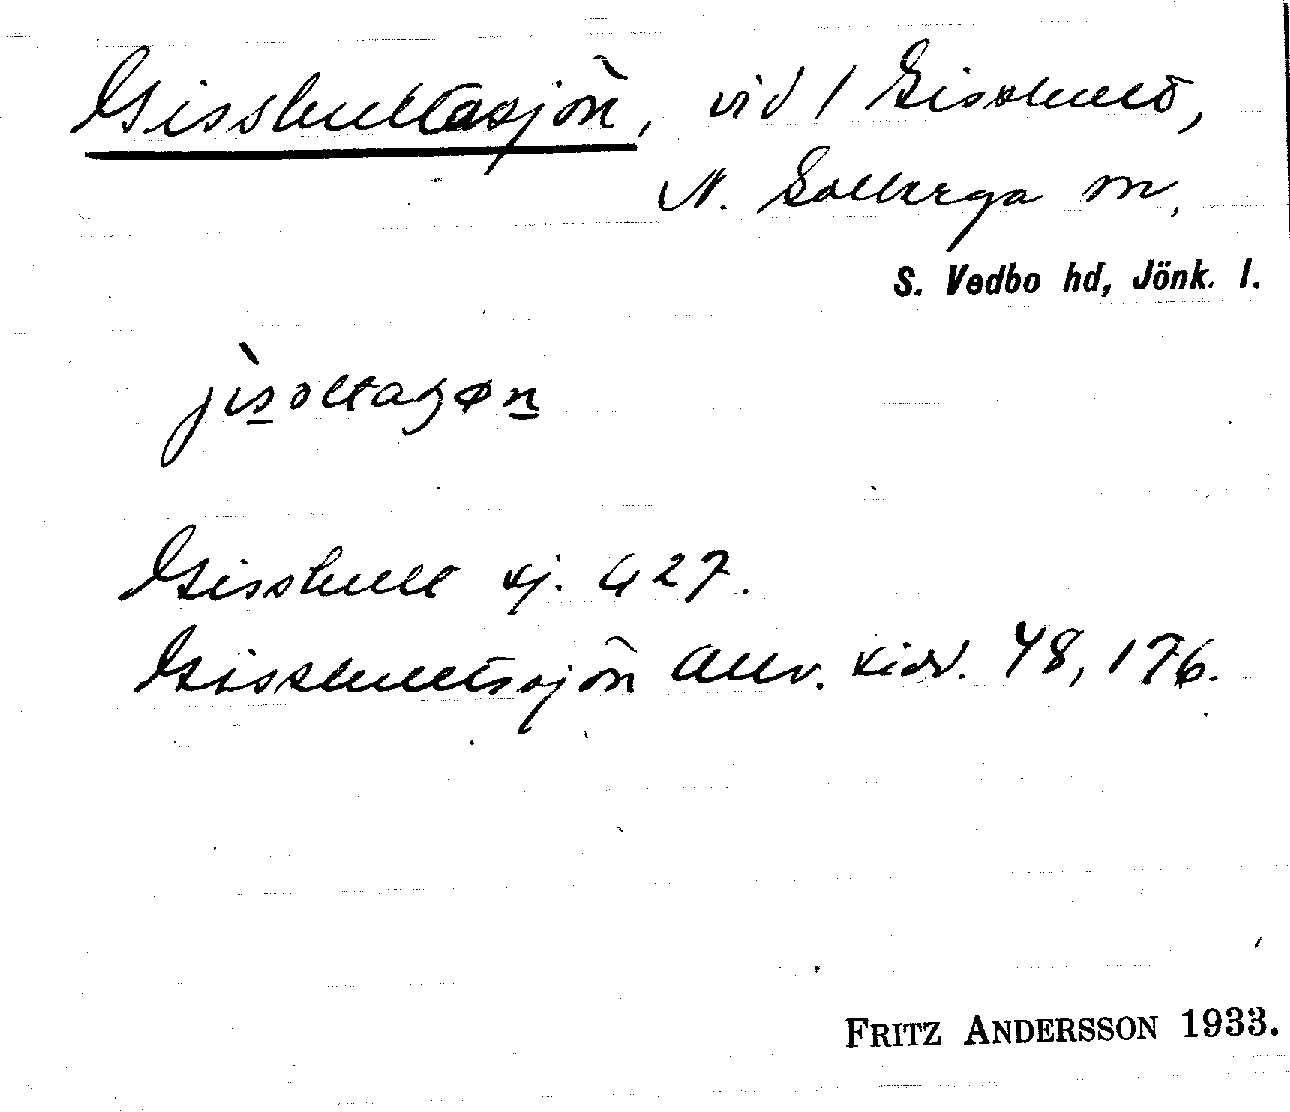 Gisshultasjön, vid 1 Gisshult,
N. Solberga sn,
S. Vedbo hd, Jönk. l.
jìsoltaʂøn
Gisshult sj. 427.
Gisshultssjön Allv. tidn. 48, 176.
FRITZ ANDERSSON 1933.